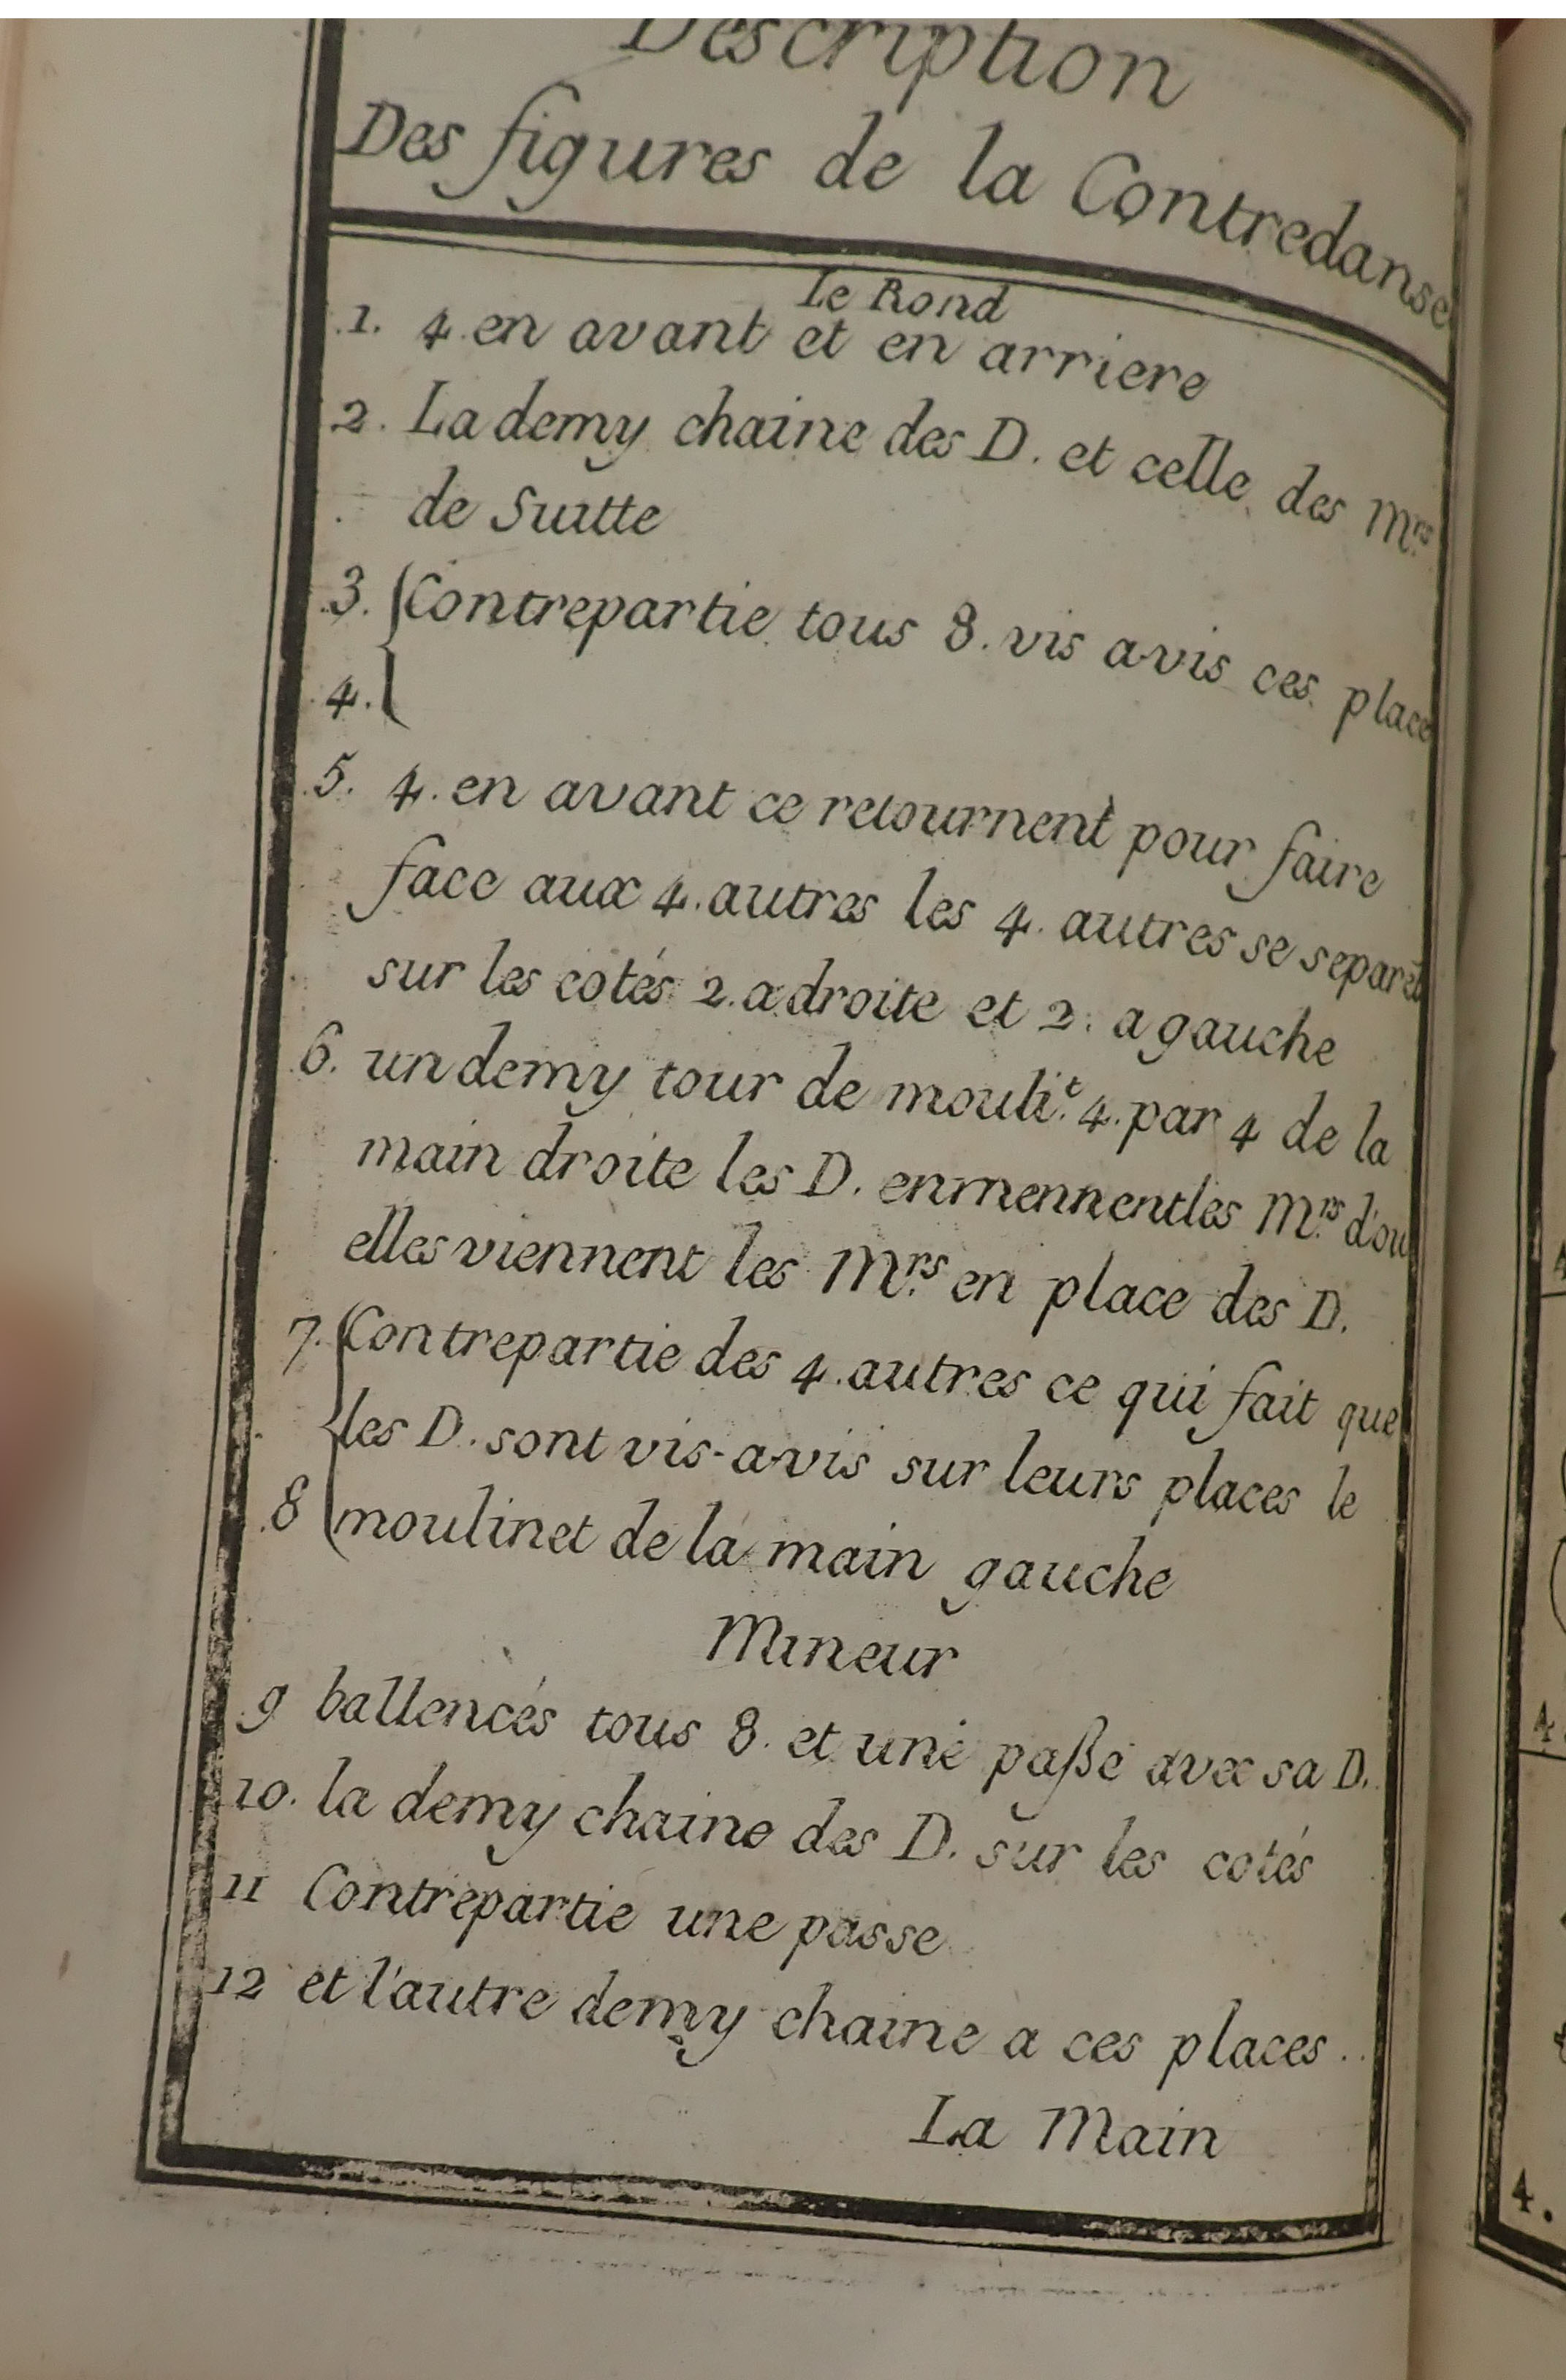 Description
Des figures de la Contredanse
Le Rond
1. 4. en avant et en arriere
2. La demy chaine des D. et celle des Mrs
de Suitte
3. Contrepartie tous 8. vis avis ces place
4.
5. 4. en avant ce retournent pour faire
face aux 4. autres les 4. autres se separēt
sur les cotés 2. a droite et 2. a gauche
6. un demy tour de mouli.t 4. par 4 de la
main droite les D. enmennent les Mrs d'ou
elles viennent les Mrs en place des D.
7. Contrepartie des 4. autres ce qui fait que
les D. sont vis-avis sur leurs places le
8 moulinet de la main gauche
Mineur
9 ballencés tous 8. et une paßé avec sa D.
10. la demy chaine des D. sur les cotés
11 Contrepartie une passe
12 et l'autre demy chaine a ces places..
La Main
4.
4.